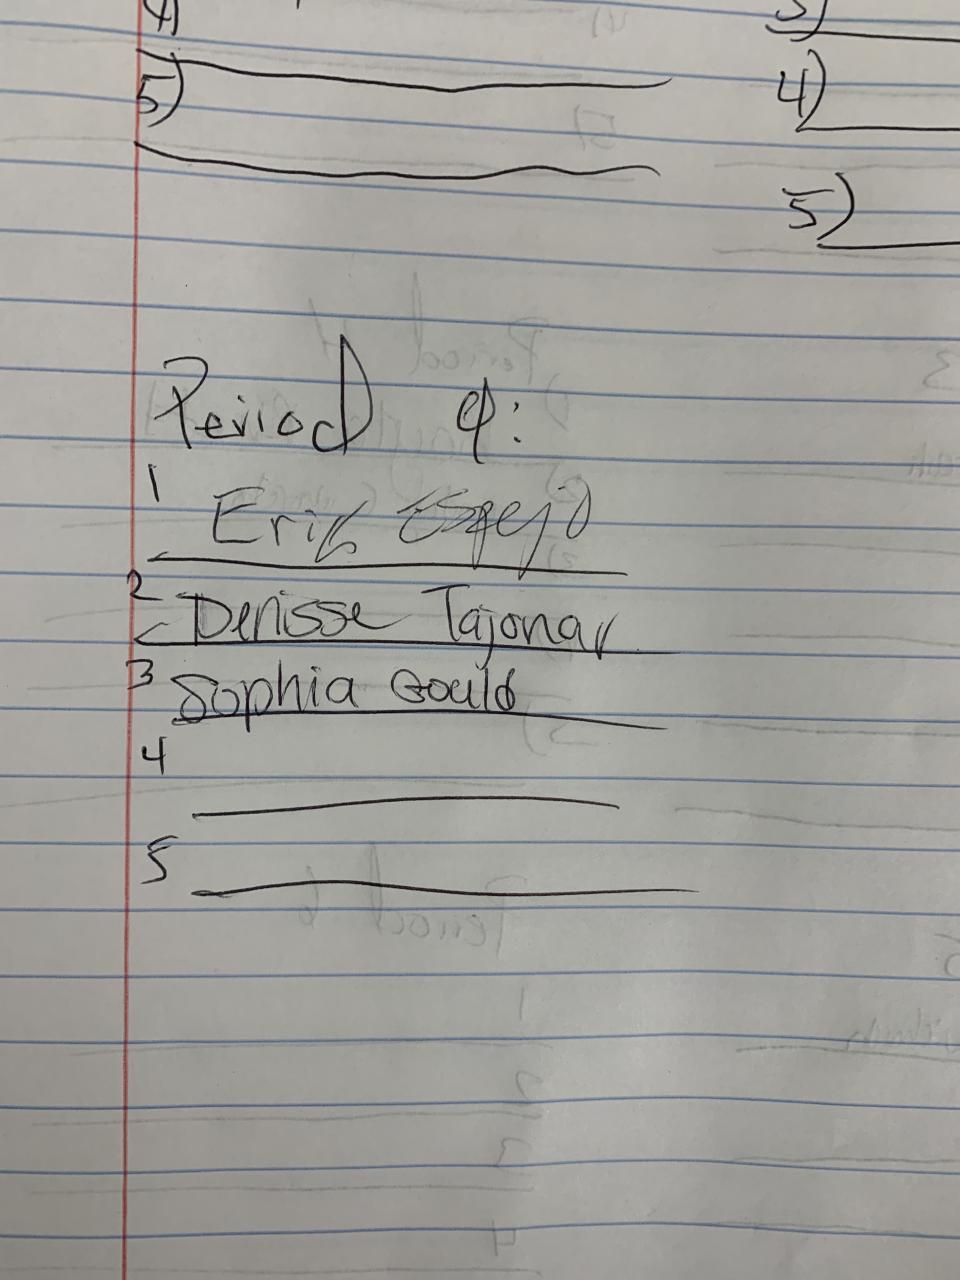 4)
5)
3)
4)
5)
Period 4:
1 Erik Espejo
2 Denisse Tajonar
3 Sophia Gould
4
5